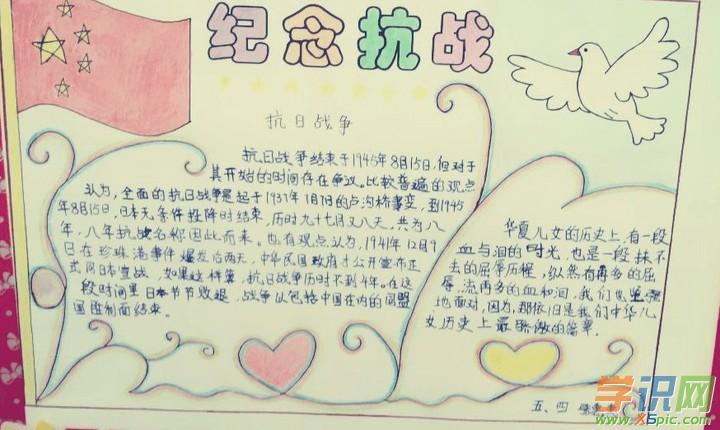 纪念抗战
抗日战争
抗日战争结束于1945年8月15日,但对于
其开始的时间存在争议。比较普遍的观点
认为,全面的抗日战争是起于1937年7月7日的卢沟桥事变,到1945
年8月15日,日本无条件投降时结束,历时九十七月又八天,共为八
年,八年抗战名称因此而来。也有观点认为,1941年12月9
日在珍珠港事件爆发后两天,中华民国政府才公开宣布正
式向日本宣战,如果这样算,抗日战争历时不到4年。在这
段时间里日本节节败退,战争以包括中国在内的同盟
国胜利而结束。
华夏儿女的历史上,有一段
血与泪的时光,也是一段抹不
去的屈辱历程,纵然有再多的屈
辱,流再多的血和泪,我们也坚强
地面对,因为,那依旧是我们中华儿
女历史上最骄傲的篇章.
五、四
学识网
www.xspic.com